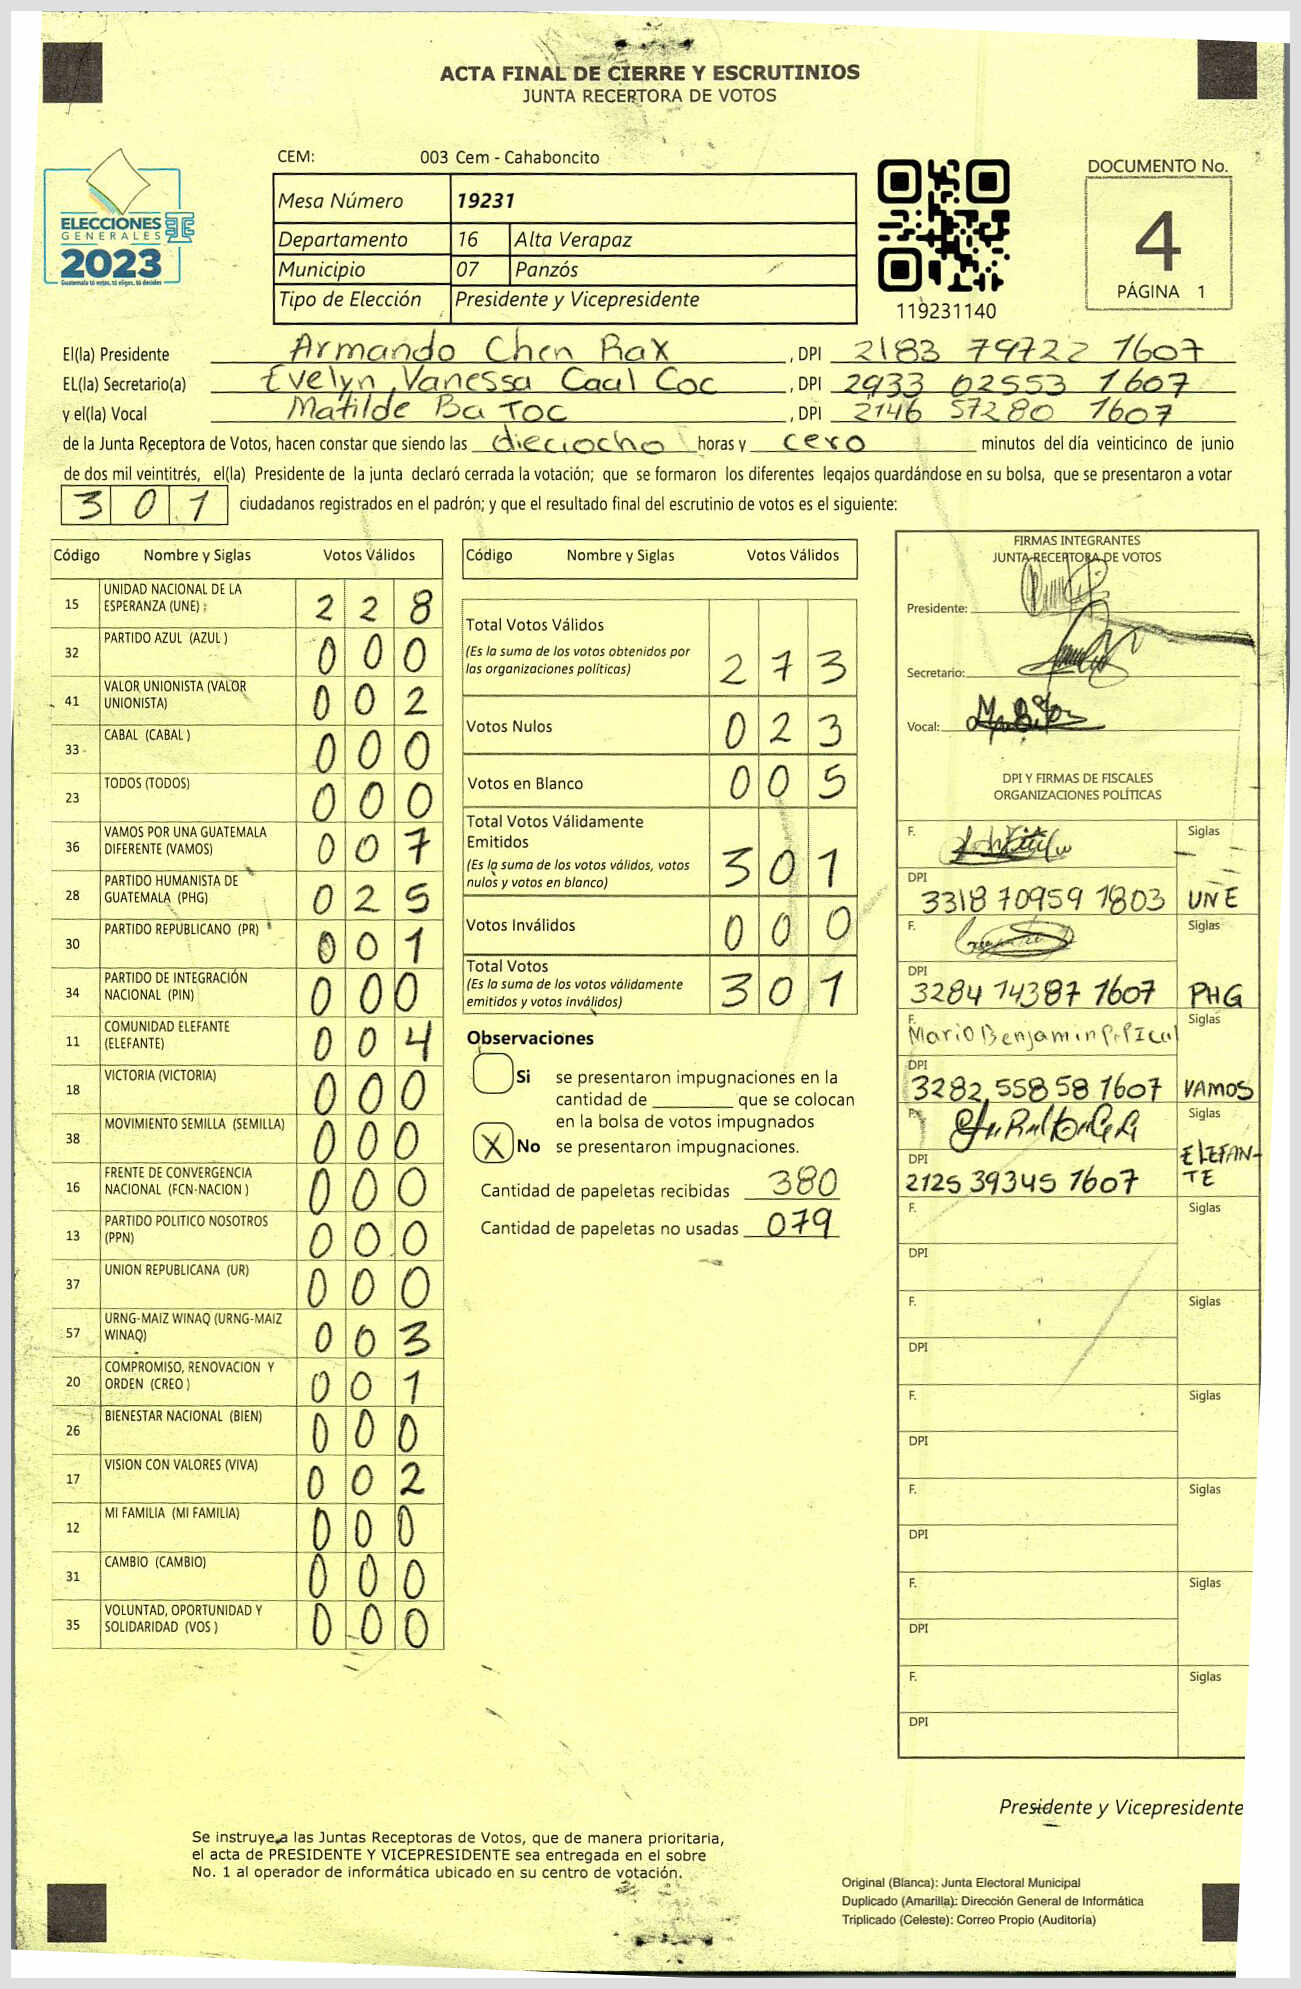 ACTA FINAL DE CIERRE Y ESCRUTINIOS
JUNTA RECEPTORA DE VOTOS
ELECCIONES
GENERALES
2023
Guatemala tú votas, tú eliges, tú decides
CEM: 003 Cem - Cahaboncito
Mesa Número 19231
Departamento 16 Alta Verapaz
Municipio 07 Panzós
Tipo de Elección Presidente y Vicepresidente
119231140
DOCUMENTO No.
4
PÁGINA 1
El(la) Presidente Armando Chen Rax , DPI 2183 79722 1607
EL(la) Secretario(a) Evelyn Vanessa Caal Coc , DPI 2933 02553 1607
y el(la) Vocal Matilde Ba Toc , DPI 2146 57280 1607
de la Junta Receptora de Votos, hacen constar que siendo las dieciocho horas y cero minutos del día veinticinco de junio
de dos mil veintitrés, el(la) Presidente de la junta declaró cerrada la votación; que se formaron los diferentes legajos guardándose en su bolsa, que se presentaron a votar
301 ciudadanos registrados en el padrón; y que el resultado final del escrutinio de votos es el siguiente:
Código Nombre y Siglas Votos Válidos
15 UNIDAD NACIONAL DE LA ESPERANZA (UNE) 2 2 8
32 PARTIDO AZUL (AZUL ) 0 0 0
41 VALOR UNIONISTA (VALOR UNIONISTA) 0 0 2
33 CABAL (CABAL ) 0 0 0
23 TODOS (TODOS) 0 0 0
36 VAMOS POR UNA GUATEMALA DIFERENTE (VAMOS) 0 0 7
28 PARTIDO HUMANISTA DE GUATEMALA (PHG) 0 2 5
30 PARTIDO REPUBLICANO (PR) 0 0 1
34 PARTIDO DE INTEGRACIÓN NACIONAL (PIN) 0 0 0
11 COMUNIDAD ELEFANTE (ELEFANTE) 0 0 4
18 VICTORIA (VICTORIA) 0 0 0
38 MOVIMIENTO SEMILLA (SEMILLA) 0 0 0
16 FRENTE DE CONVERGENCIA NACIONAL (FCN-NACION ) 0 0 0
13 PARTIDO POLITICO NOSOTROS (PPN) 0 0 0
37 UNION REPUBLICANA (UR) 0 0 0
57 URNG-MAIZ WINAQ (URNG-MAIZ WINAQ) 0 0 3
20 COMPROMISO, RENOVACION Y ORDEN (CREO ) 0 0 1
26 BIENESTAR NACIONAL (BIEN) 0 0 0
17 VISION CON VALORES (VIVA) 0 0 2
12 MI FAMILIA (MI FAMILIA) 0 0 0
31 CAMBIO (CAMBIO) 0 0 0
35 VOLUNTAD, OPORTUNIDAD Y SOLIDARIDAD (VOS ) 0 0 0
Código Nombre y Siglas Votos Válidos
Total Votos Válidos
(Es la suma de los votos obtenidos por
las organizaciones políticas) 2 7 3
Votos Nulos 0 2 3
Votos en Blanco 0 0 5
Total Votos Válidamente
Emitidos
(Es la suma de los votos válidos, votos
nulos y votos en blanco) 3 0 1
Votos Inválidos 0 0 0
Total Votos
(Es la suma de los votos válidamente
emitidos y votos inválidos) 3 0 1
Observaciones
Si se presentaron impugnaciones en la
cantidad de ________ que se colocan
en la bolsa de votos impugnados
X No se presentaron impugnaciones.
Cantidad de papeletas recibidas 380
Cantidad de papeletas no usadas 079
FIRMAS INTEGRANTES
JUNTA RECEPTORA DE VOTOS
Presidente:
Secretario:
Vocal:
DPI Y FIRMAS DE FISCALES
ORGANIZACIONES POLÍTICAS
F. Siglas
DPI
3318 70959 1803 UNE
F. Siglas
DPI
3284 14387 1607 PHG
F. Mario Benjamin Siglas
DPI
3282 558 58 1607 VAMOS
F. Siglas
DPI ELEFAN-
2125 39345 1607 TE
F. Siglas
DPI
F. Siglas
DPI
F. Siglas
DPI
F. Siglas
DPI
F. Siglas
DPI
F. Siglas
DPI
Presidente y Vicepresidente
Se instruye a las Juntas Receptoras de Votos, que de manera prioritaria,
el acta de PRESIDENTE Y VICEPRESIDENTE sea entregada en el sobre
No. 1 al operador de informática ubicado en su centro de votación.
Original (Blanca): Junta Electoral Municipal
Duplicado (Amarilla): Dirección General de Informática
Triplicado (Celeste): Correo Propio (Auditoría)